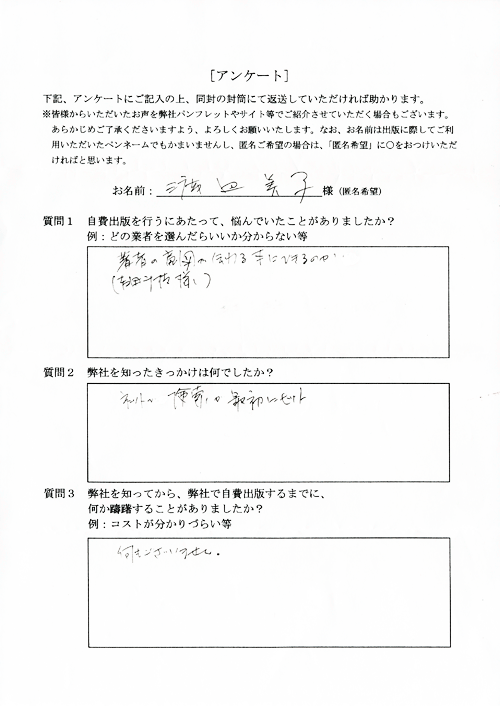 [アンケート]
下記、アンケートにご記入の上、同封の封筒にて返送していただければ助かります。
※皆様からいただいたお声を弊社パンフレットやサイト等でご紹介させていただく場合もございます。
あらかじめご了承くださいますよう、よろしくお願いいたします。なお、お名前は出版に際してご利
用いただいたペンネームでもかまいませんし、匿名ご希望の場合は、「匿名希望」に○をおつけいただ
ければと思います。
お名前： 渡辺 美子 様（匿名希望）
質問１ 自費出版を行うにあたって、悩んでいたことがありましたか？
例：どの業者を選んだらいいか分からない等
著者の意図の
質問２ 弊社を知ったきっかけは何でしたか？
ネットの検索の最初にヒット
質問３ 弊社を知ってから、弊社で自費出版するまでに、
何か躊躇することがありましたか？
例：コストが分かりづらい等
何もございません。